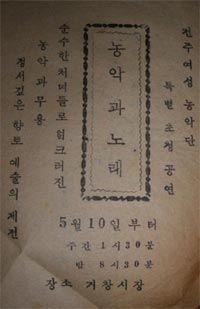 전주여성농악단
특별 초청 공연
농악과노래
순수한처녀들로
농악과무용
정서깊은 향토 예술의 제전
5월10일부터
주간 1시30분
밤 8시30분
장소 거창시장